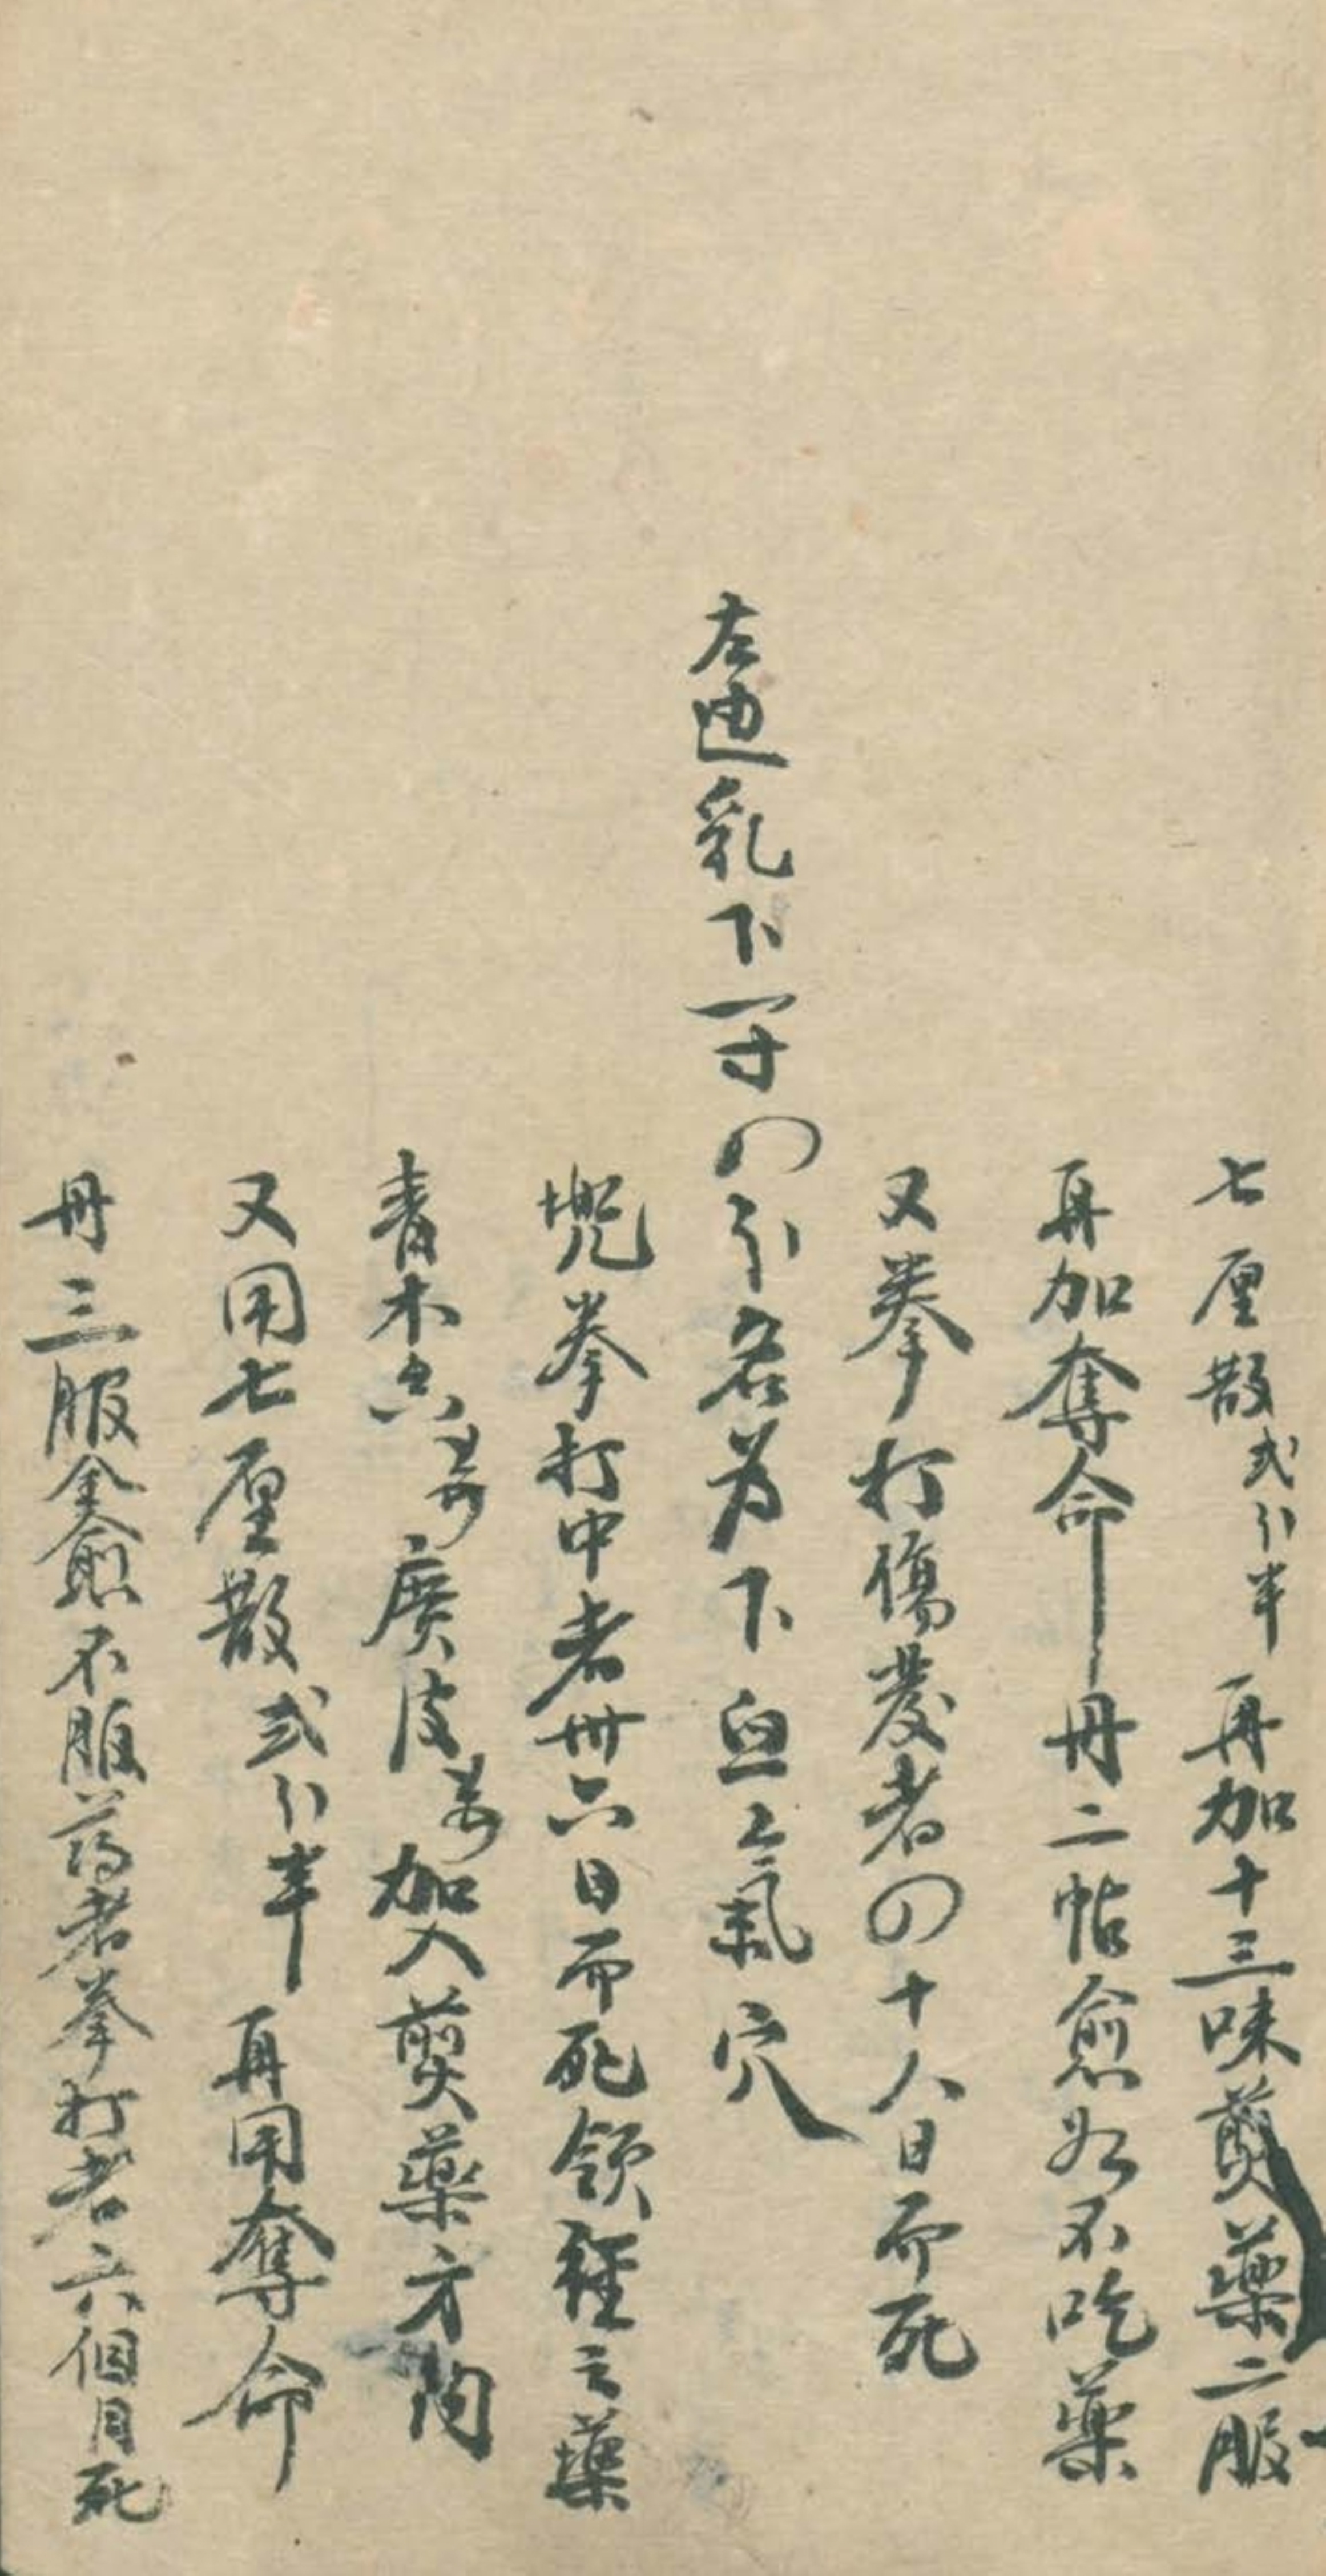 七厘散弍分半再加十三味煎藥二服
再加奪命丹二帖愈如不吃藥
又拳打傷發者四十八日而死
左边乳下一寸四分名為下血氣穴
拳打中者卅六日而死領經之藥
青木香廣皮加入煎藥方內
又用七厘散弍分半再用奪命
丹三服全愈不服药者拳打者六個月死